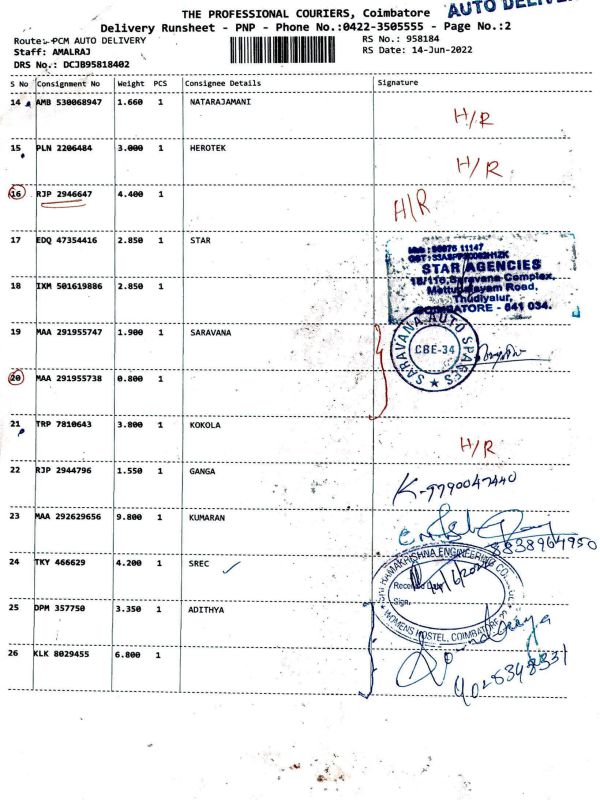 THE PROFESSIONAL COURIERS, Coimbatore
AUTO DELIVER
Delivery Runsheet - PNP - Phone No.:0422-3505555 - Page No.:2
Route:-PCM AUTO DELIVERY
RS No.: 958184
Staff: AMALRAJ
RS Date: 14-Jun-2022
DRS No.: DCJB95818402
S No Consignment No Weight PCS Consignee Details Signature
14 AMB 530068947 1.660 1 NATARAJAMANI H/R
15 PLN 2206484 3.000 1 HEROTEK H/R
16 RJP 2946647 4.400 1 H/R
17 EDQ 47354416 2.850 1 STAR
STAR AGENCIES
18/110, Saravana Complex,
Mettupalayam Road,
Thudiyalur,
COIMBATORE - 641 034.
18 IXM 501619886 2.850 1
19 MAA 291955747 1.900 1 SARAVANA
SARAVANA AUTO SPARES
CBE-34
20 MAA 291955738 0.800 1
21 TRP 7810643 3.800 1 KOKOLA H/R
22 RJP 2944796 1.550 1 GANGA
23 MAA 292629656 9.800 1 KUMARAN
8838964950
24 TKY 466629 4.200 1 SREC
SRI RAMAKRISHNA ENGINEERING
Received Date
Sign.
WOMENS HOSTEL, COIMBATORE
25 DPM 357750 3.350 1 ADITHYA
26 KLK 8029455 6.800 1